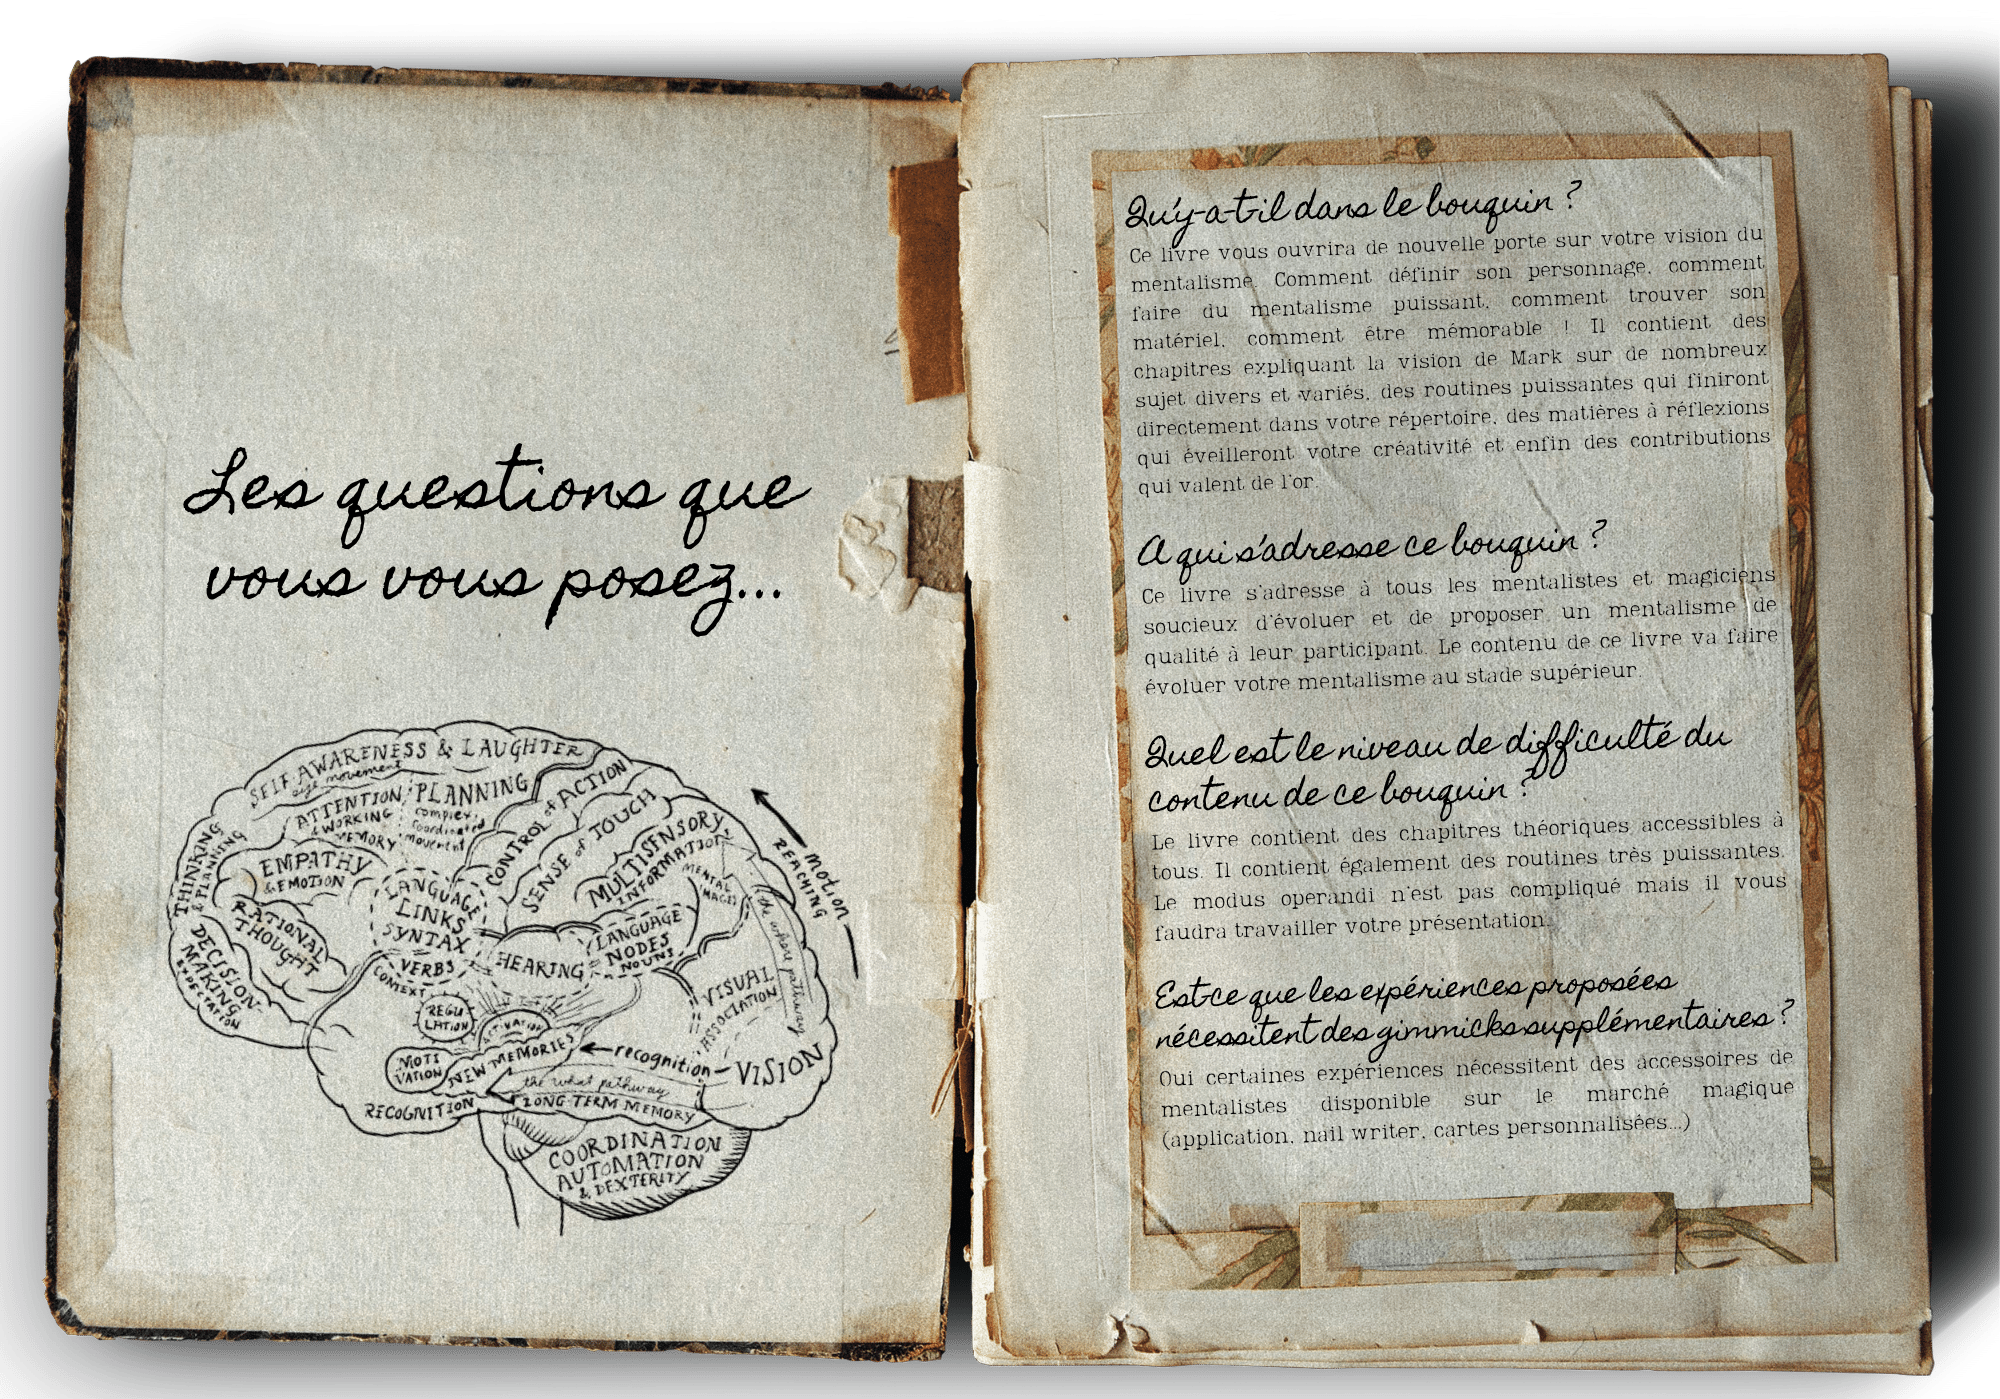 Les questions que
vous vous posez...
SELF AWARENESS & LAUGHTER
eye movement
ATTENTION
& WORKING
MEMORY
PLANNING
complex
coordinated
movement
CONTROL of ACTION
SENSE of TOUCH
MULTISENSORY
INFORMATION
MENTAL
THINKING
& PLANNING
EMPATHY
& EMOTION
RATIONAL
THOUGHT
DECISION-
MAKING
EXPECTATION
LANGUAGE
LINKS
SYNTAX
VERBS
CONTEXT
HEARING
LANGUAGE
NODES
NOUNS
motion
REACHING
the where pathway
VISUAL
ASSOCIATION
VISION
REGU
LATION
MOTI
VATION
NEW MEMORIES
recognition
the what pathway
LONG-TERM MEMORY
RECOGNITION
COORDINATION
AUTOMATION
& DEXTERITY
Qu'y-a-t-il dans le bouquin ?
Ce livre vous ouvrira de nouvelle porte sur votre vision du
mentalisme. Comment définir son personnage, comment
faire du mentalisme puissant, comment trouver son
matériel, comment être mémorable ! Il contient des
chapitres expliquant la vision de Mark sur de nombreux
sujet divers et variés, des routines puissantes qui finiront
directement dans votre répertoire, des matières à réflexions
qui éveilleront votre créativité et enfin des contributions
qui valent de l'or.
A qui s'adresse ce bouquin ?
Ce livre s'adresse à tous les mentalistes et magiciens
soucieux d'évoluer et de proposer un mentalisme de
qualité à leur participant. Le contenu de ce livre va faire
évoluer votre mentalisme au stade supérieur.
Quel est le niveau de difficulté du
contenu de ce bouquin ?
Le livre contient des chapitres théoriques accessibles à
tous. Il contient également des routines très puissantes.
Le modus operandi n'est pas compliqué mais il vous
faudra travailler votre présentation.
Est-ce que les expériences proposées
nécessitent des gimmicks supplémentaires ?
Oui certaines expériences nécessitent des accessoires de
mentalistes disponible sur le marché magique
(application, nail writer, cartes personnalisées...)